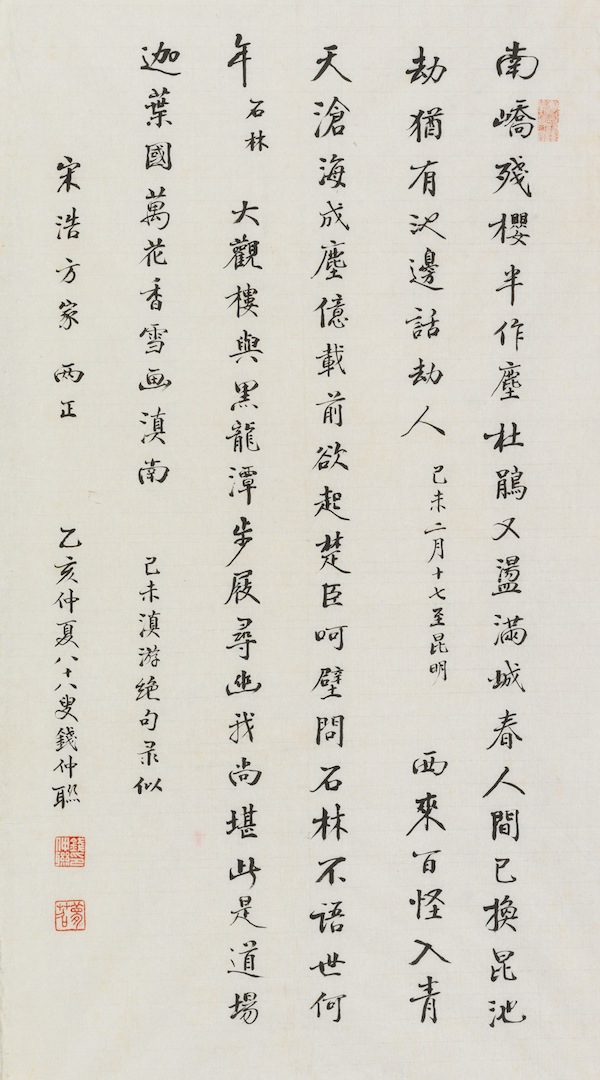 南嶠殘櫻半作塵杜鵑又盪滿城春人間已換昆池
劫猶有池邊話劫人 己未二月十七至昆明 西來百怪入青
天滄海成塵億載前欲起楚臣呵壁問石林不語世何
年 石林 大觀樓與黑龍潭步屐尋幽我尚堪此是道場
迦葉國萬花香雪画滇南 己未滇游绝句录似
宋浩方家 两正 乙亥仲夏八十八叟錢仲聯
錢印仲聯
夢苕